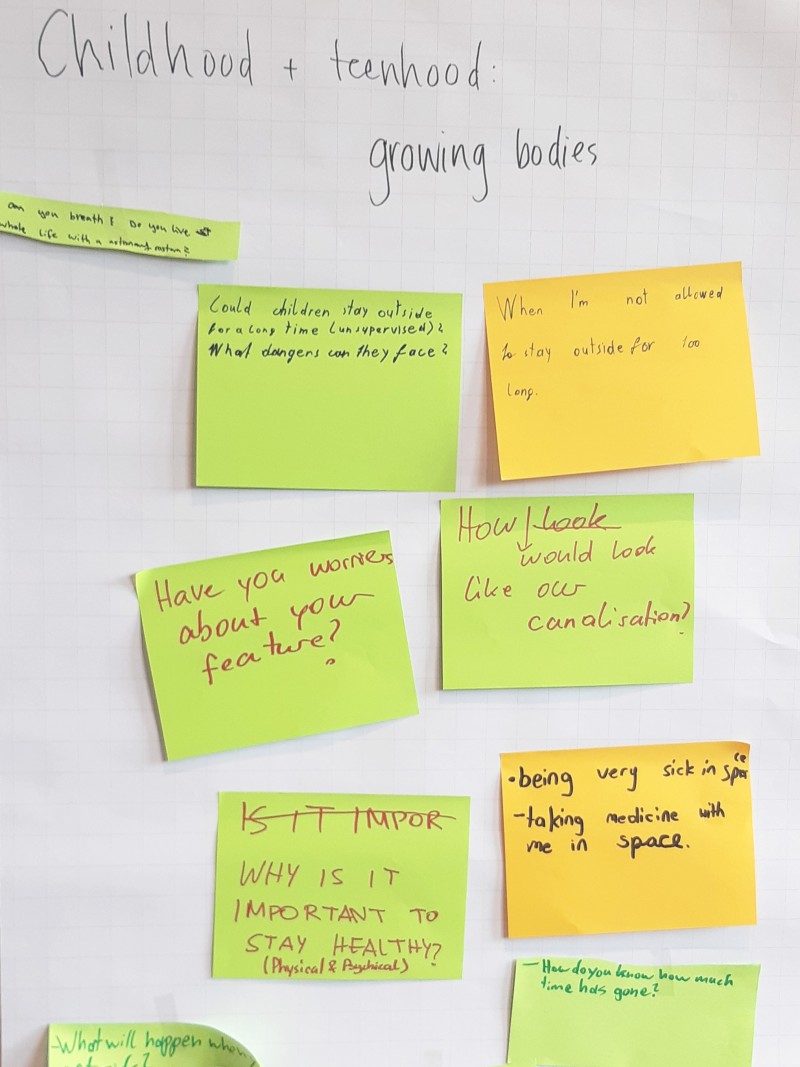 Childhood + teenhood:
growing bodies
can you breath? Do you live
whole life with a
Could children stay outside
for a long time (unsupervised)?
What dangers can they face?
When I'm not allowed
to stay outside for too
long.
Have you worries
about your
feature?
How look
would look
like our
canalisation?
IS IT IMPOR
WHY IS IT
IMPORTANT TO
STAY HEALTHY?
(Physical & Psychical)
•being very sick in space
-taking medicine with
me in space.
- How do you know how much
time has gone?
-What will happen when